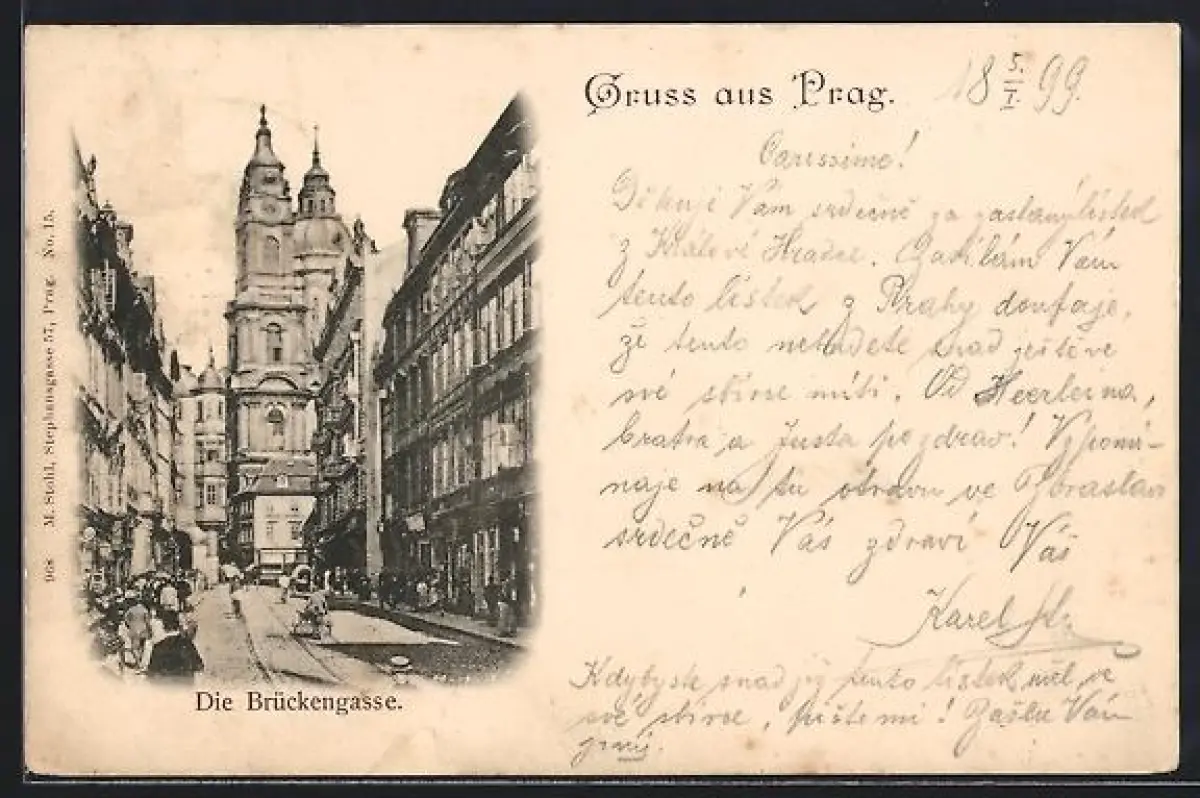 Gruss aus Prag.
18 5./I. 99.
Carissime!
Děkuji Vám srdečně za zaslaný lístek
z Králové Hradce. Zasílám Vám
tento lístek z Prahy doufaje,
že tento nebudete snad ještě ve
své sbírce míti. Od
bratra a pozdrav! Vzpomí-
naje na tu ve
srdečně Vás zdraví Váš
Karel
Kdybyste snad již tento lístek měl, ve
své sbírce, pište mi! Zašlu Vám
jiný.
Die Brückengasse.
968 M. Stohl, Stephansgasse 57, Prag. No. 15.